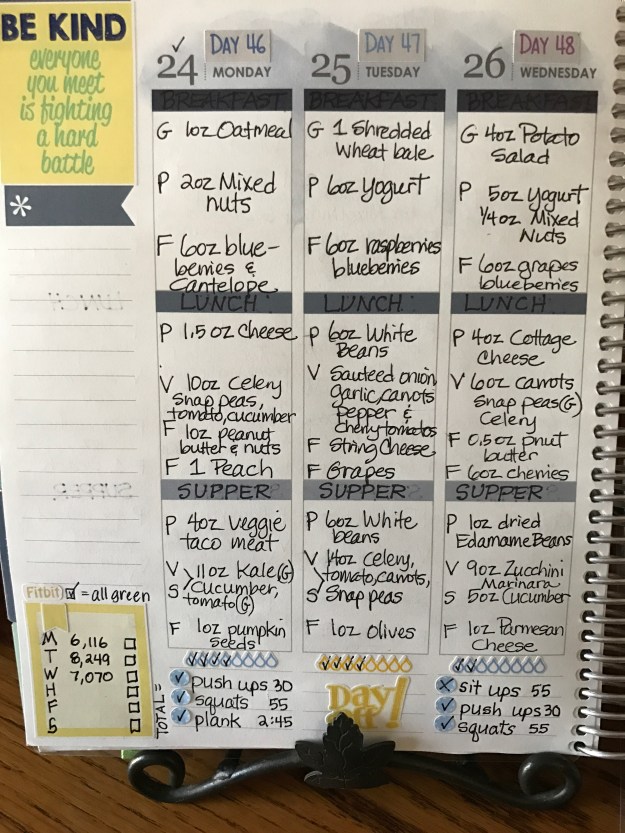 BE KIND
everyone
you meet
is fighting
a hard
battle
*
Fitbit ☑ = all green
M 6,116
T 8,249
W 7,070
H
F
S
DAY 46
24 MONDAY
BREAKFAST
G 1oz Oatmeal
P 2oz Mixed
nuts
F 6oz blue-
berries &
Cantelope
LUNCH:
P 1.5 oz Cheese
V 10oz Celery
Snap peas,
tomato, cucumber
F 1oz peanut
butter & nuts
F 1 Peach
SUPPER
P 4oz veggie
taco meat
V 11oz Kale (G)
S Cucumber,
tomato (G)
F 1oz pumpkin
seeds
TOTAL=
push ups 30
squats 55
plank 2:45
DAY 47
25 TUESDAY
BREAKFAST
G 1 Shredded
Wheat bale
P 6oz Yogurt
F 6oz raspberries
blueberries
LUNCH:
P 6oz White
Beans
V Sauteed onion
garlic, carrots
pepper &
cherry tomatoes
F String Cheese
F Grapes
SUPPER
P 6oz White
beans
V 14oz Celery,
tomato, carrots,
S Snap peas
F 1oz Olives
Day
off!
DAY 48
26 WEDNESDAY
BREAKFAST
G 4oz Potato
Salad
P 5oz Yogurt
1/4oz Mixed
Nuts
F 6oz grapes
blueberries
LUNCH:
P 4oz Cottage
Cheese
V 6oz carrots
snap peas (G)
Celery
F 0.5oz pnut
butter
F 6oz cherries
SUPPER
P 1oz dried
Edamame Beans
V 9oz Zucchini
Marinara
S 5oz Cucumber
F 1oz Parmesan
Cheese
sit ups 55
push ups 30
squats 55